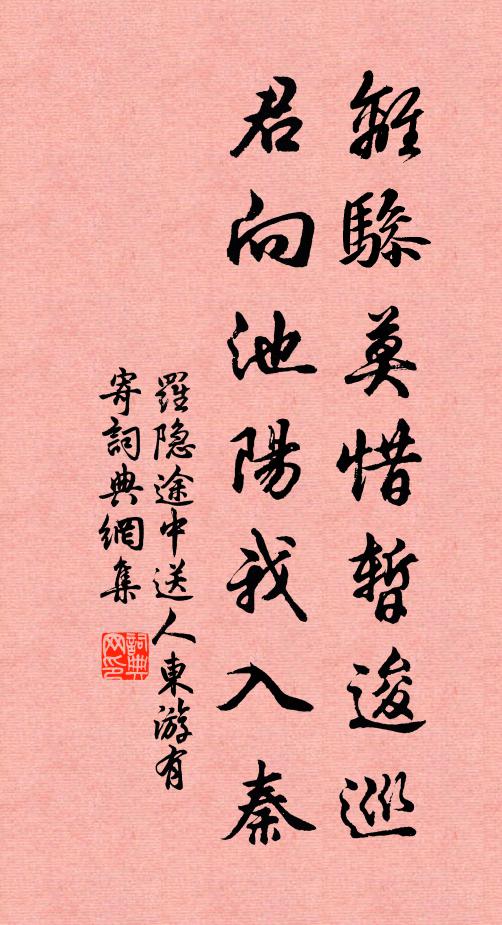 離驂莫惜暫逡巡
君向池陽我入秦
羅隐途中送人東游有
寄詞典網集
詞典网印